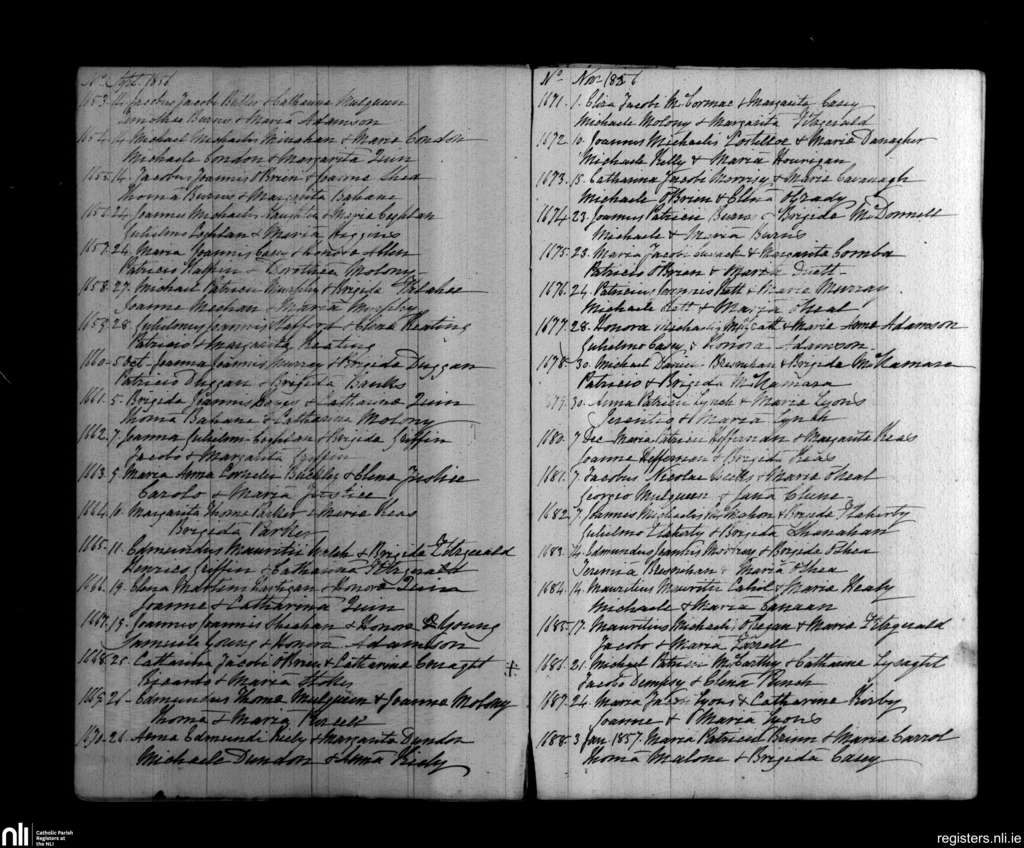 No. Sept. 1856
1653. 14. Jacobus Jacobi Butler & Catharina Mulqueen
Timotheo Burns & Maria Adamson
1654. 14. Michael Michaelis Minahan & Maria Condon
Michaele Condon & Margarita Quin
1655. 14. Jacobus Joannis O'Brien & Joanna Shea
Thoma Burns & Margarita Bahane
1656. 24. Joannes Michaelis & Maria Coghlan
Gulielmo Coghlan & Maria Higgins
1657. 24. Maria Joannis Casey & Honora Allen
Patricio Halpin & Dorothea Molony
1658. 27. Michael Patricii Murphy & Brigida
Joanne Meehan & Maria Murphy
1659. 28. Gulielmus Joannis Stafford & Elena Keating
Patricio & Margarita Keating
1660. 5 Oct. Joanna Joannis Murray & Brigida Duggan
Patricio Duggan & Brigida Banks
1661. 5. Brigida Joannis & Catharina Quin
Thoma Bahane & Catharina Molony
1662. 7. Joanna Gulielmi Coghlan & Brigida Griffin
Jacobo & Margarita Griffin
1663. 9. Maria Anna Cornelii Buckley & Elena Justice
Carolo & Maria Justice
1664. 10. Margarita Thomae Parker & Maria Keas
Brigida Parker
1665. 11. Edmundus Mauritii Welsh & Brigida Fitzgerald
Henrico Griffin & Catharina Fitzgerald
1666. 19. Elena Martini Hartigan & Honora Quin
Joanne & Catharina Quin
1667. 19. Joannes Joannis Sheahan & Honora Young
Samuele Young & Honora Adamson
1668. 25. Catharina Jacobi O'Brien & Catharina Conaght
Gerardo & Maria Stokes
1669. 26. Edmundus Thomae Mulqueen & Joanna Molony
Thoma & Maria Russell
1670. 26. Anna Edmundi Kiely & Margarita Dundon
Michaele Dundon & Anna Kiely
No. Nov. 1856
1671. 1. Eliza Jacobi McCormac & Margarita Casey
Michaele Molony & Margarita Fitzgerald
1672. 10. Joannes Michaelis Costelloe & Maria Danagher
Michaele Kelly & Maria Hourigan
1673. 15. Catharina Jacobi Morrisy & Maria Cavanagh
Michaele O'Brien & Elena O'Grady
1674. 23. Joannes Patricii Burns & Brigida McDonnell
Michaele & Maria Burns
1675. 23. Maria Jacobi & Margarita Comba
Patricio O'Brien & Maria
1676. 24. Patricius Kett & Maria Murray
Michaele Kett & Maria Sheal
1677. 28. Honora Michaelis & Maria Anna Adamson
Gulielmo Casey & Honora Adamson
1678. 30. Michael Danieli Bresnihan & Brigida McNamara
Patricio & Brigida McNamara
1679. 30. Anna Patricii Lynch & Maria Lyons
& Maria Lynch
1680. 7 Dec. Maria Patricii Heffernan & Margarita Keas
Joanne Heffernan & Brigida Keas
1681. 7. Jacobus Nicolae & Maria Sheal
Georgio Mulqueen & Jana Clune
1682. 7. Joannes Michaelis McMahon & Brigida Flaherty
Gulielmo Flaherty & Brigida Shanahan
1683. 14. Edmundus Joannis & Brigida O'Shea
Jeremia Bresnihan & Maria O'Shea
1684. 14. Mauritius Mauritii Cahil & Maria Healy
Michaele & Maria
1685. 17. Mauritius Michaelis & Maria Fitzgerald
Jacobo & Maria Farrell
1686. 21. Michael Patricii McCarthy & Catharina Lysaght
Jacobo Dempsy & Elena Punch
1687. 24. Maria Jacobi Lyons & Catharina Kirby
Joanne & Maria Lyons
1688. 3 Jan. 1857. Maria Patricii & Maria Carrol
Thoma Malone & Brigida Casey
nli
Catholic Parish
Registers at
the NLI
registers.nli.ie